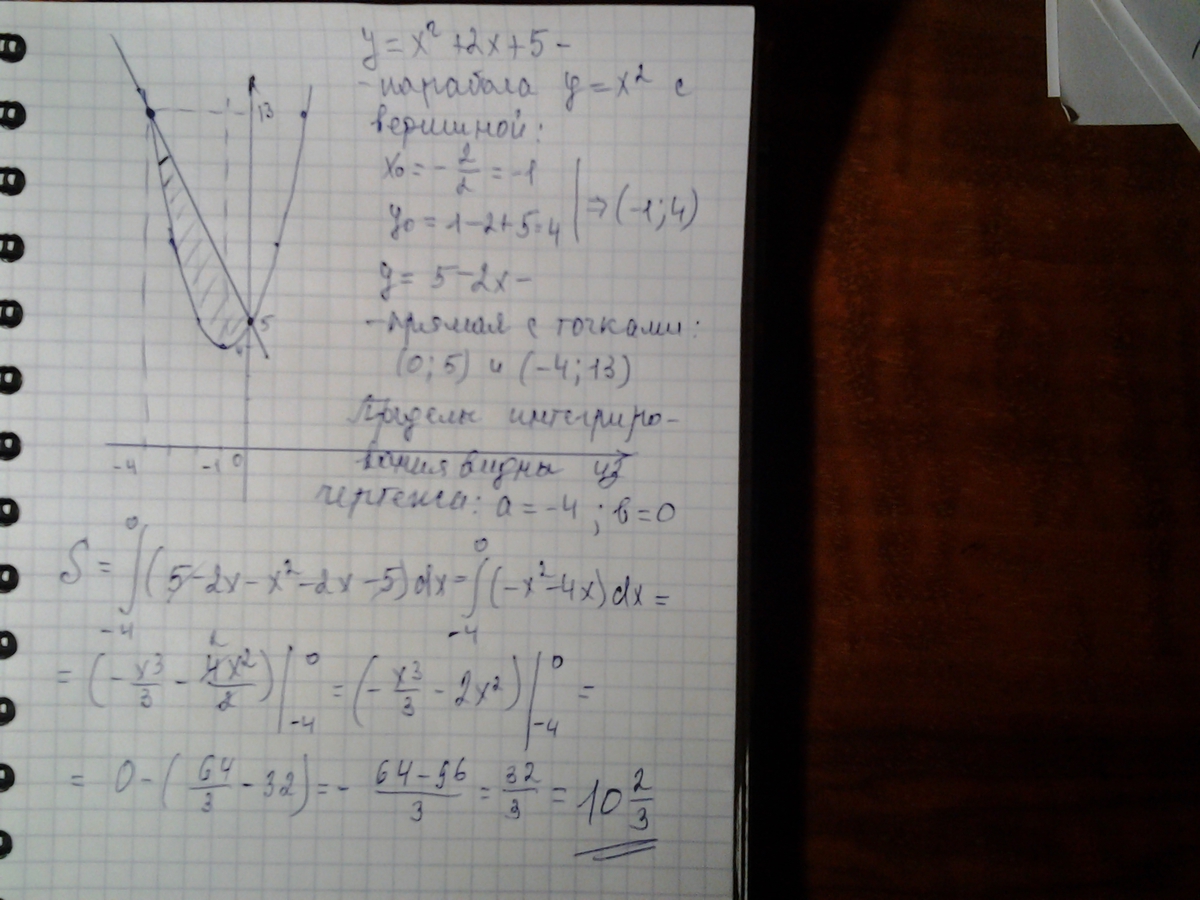 y = x² + 2x + 5 -
- парабола y = x² с
вершиной:
x₀ = - 2/2 = -1
y₀ = 1 - 2 + 5 = 4 | ⇒ (-1; 4)
y = 5 - 2x -
- прямая с точками:
(0; 5) и (-4; 13)
Пределы интегриро-
вания видны из
чертежа: a = -4 ; b = 0
13
5
4
-4 -1 0
S = ∫₋₄⁰ (5 - 2x - x² - 2x - 5) dx = ∫₋₄⁰ (-x² - 4x) dx =
= (- x³/3 - 4x²/2) |₋₄⁰ = (- x³/3 - 2x²) |₋₄⁰ =
= 0 - (64/3 - 32) = - (64 - 96)/3 = 32/3 = 10 2/3